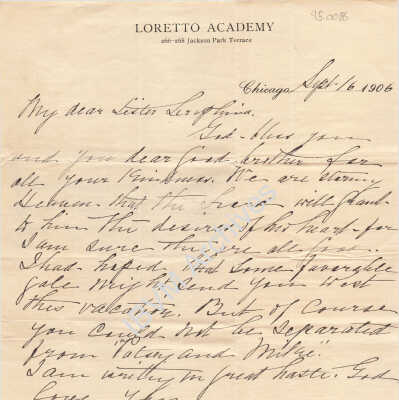 95.0086
LORETTO ACADEMY
266-268 Jackson Park Terrace
Chicago, Sept. 16 1906
My dear Sister Seraphina.
God bless you
and your dear good brother for
all your kindness. We are storming
Heaven that the will grant
to him the desires of his heart for
I am sure they are all
I had hoped that some favorable
gale might send you West
this vacation. But of course
you could not be separated
from "Patsy and Mike".
I am writing in great haste. God
love you